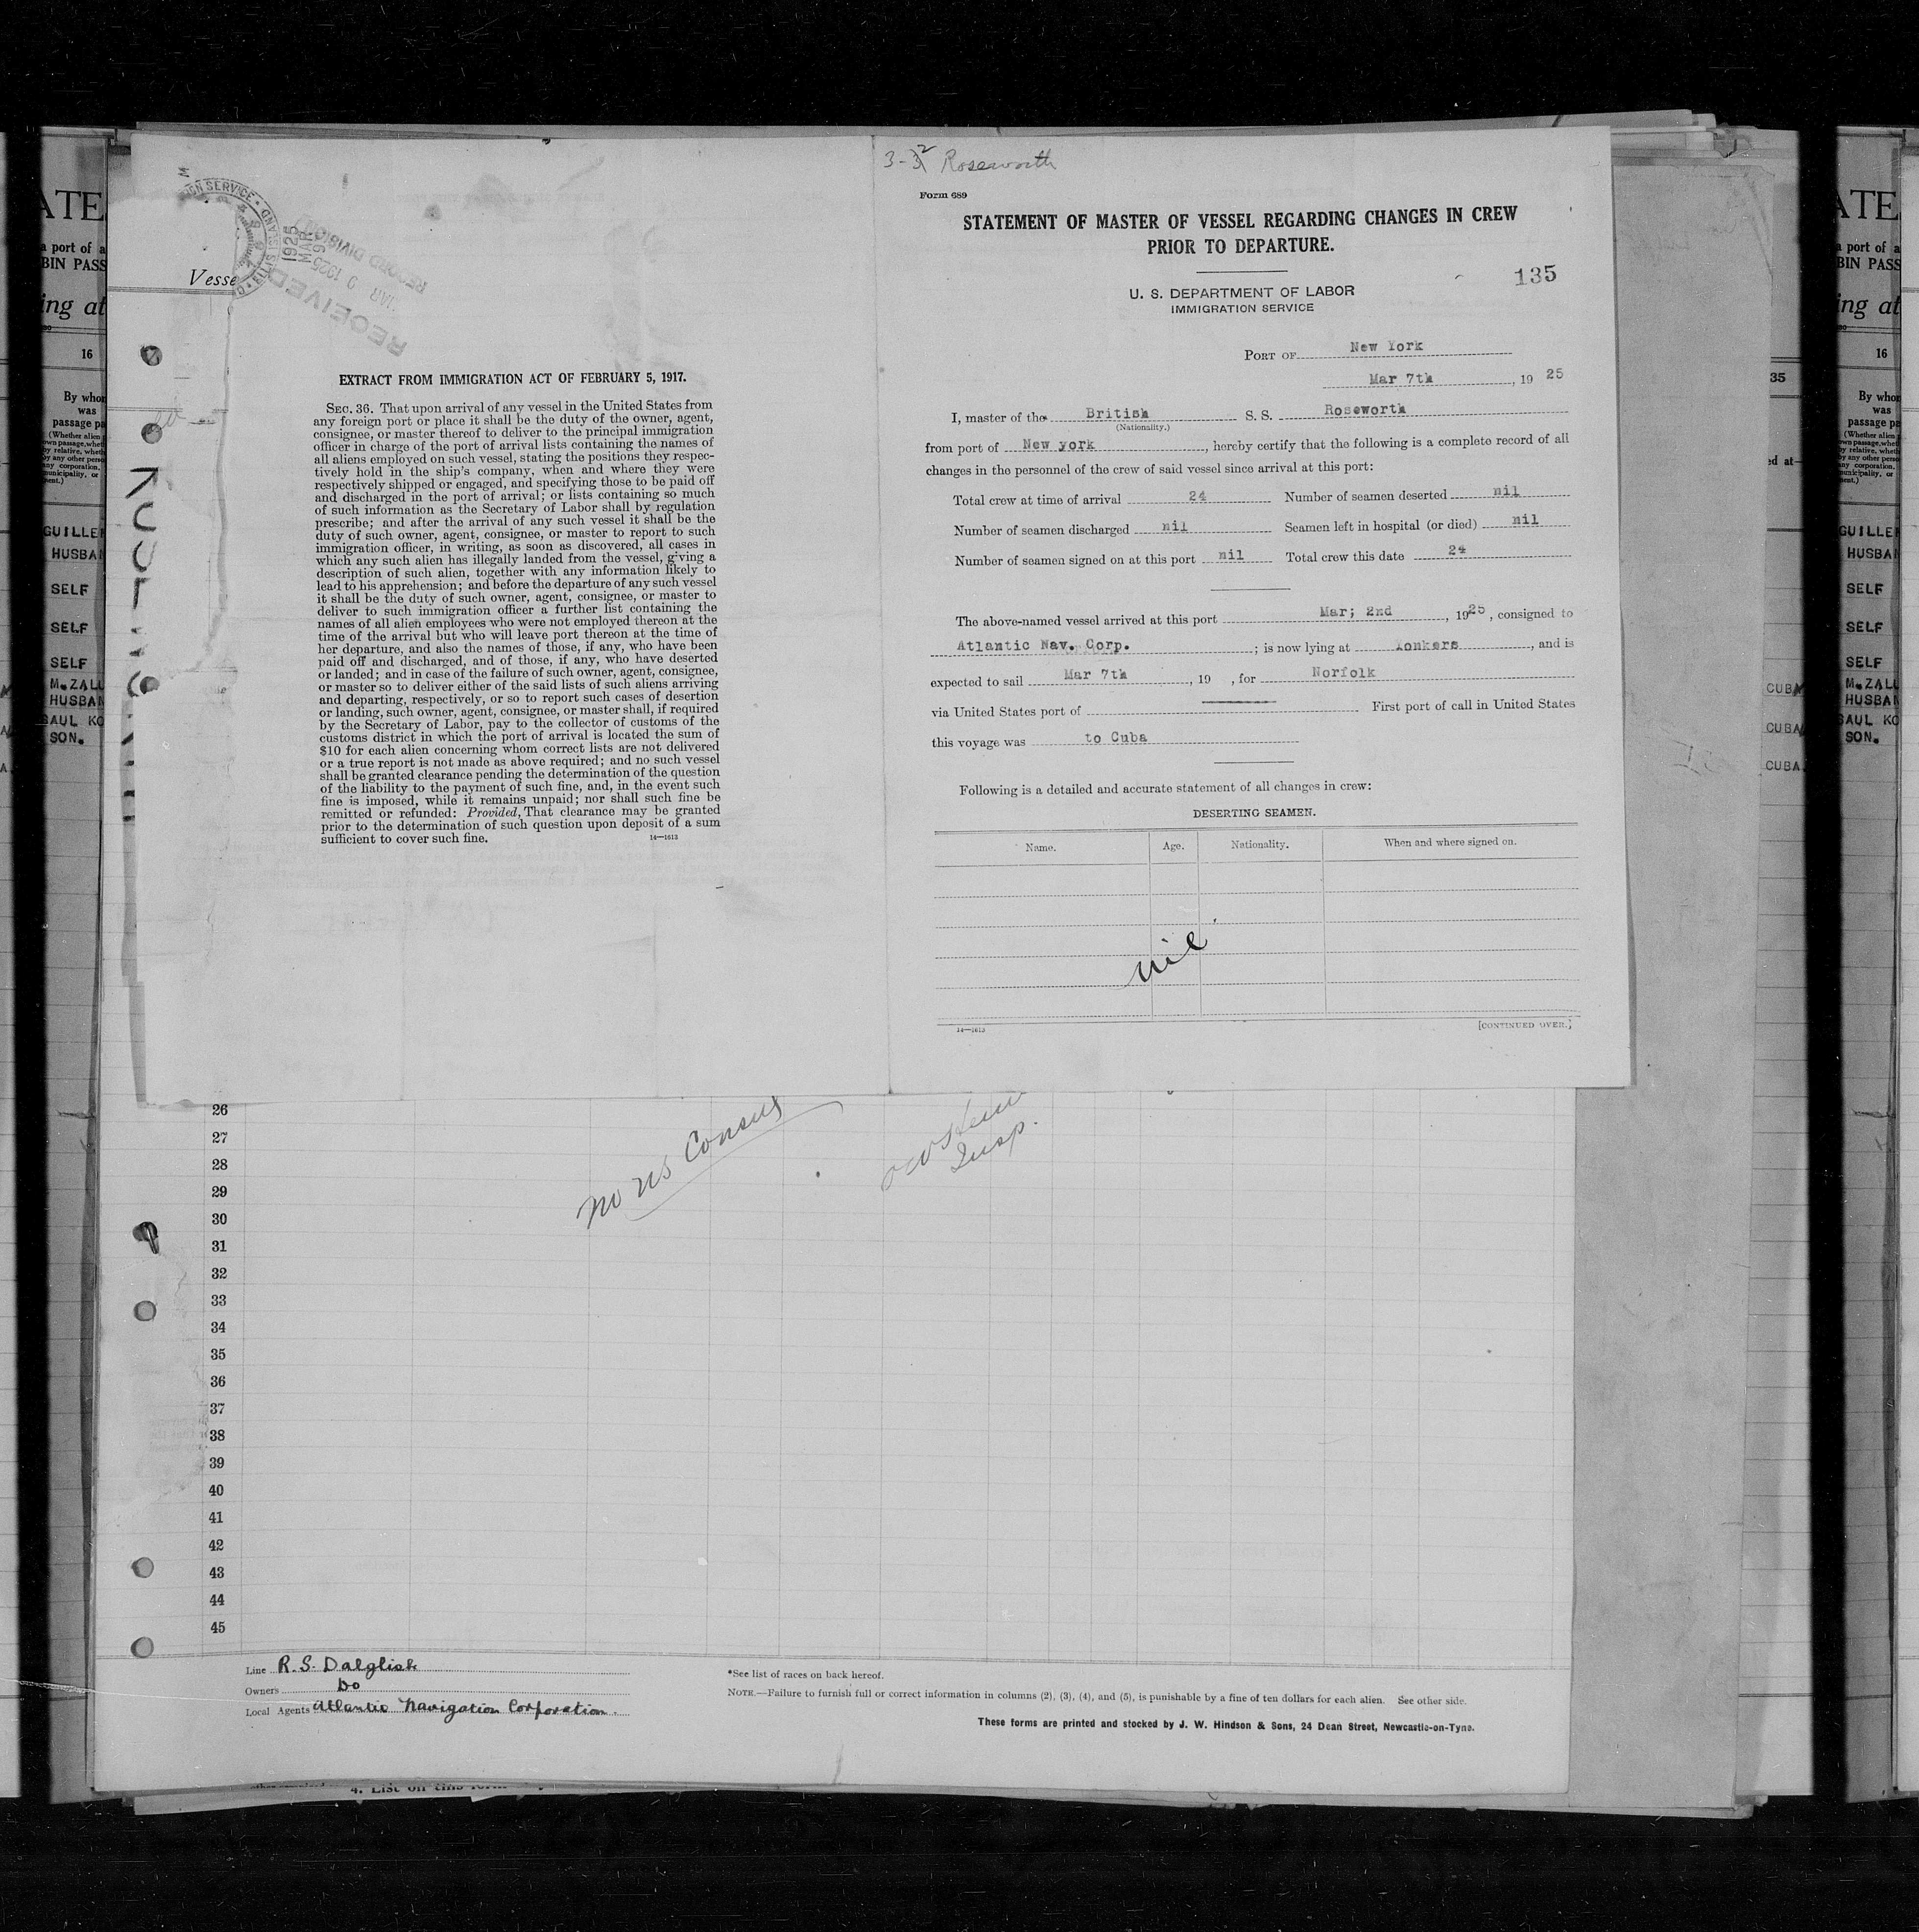 3-2 Roseworth
Form 689
STATEMENT OF MASTER OF VESSEL REGARDING CHANGES IN CREW
PRIOR TO DEPARTURE.
135
U. S. DEPARTMENT OF LABOR
IMMIGRATION SERVICE
PORT OF New York
Mar 7th, 19 25
I, master of the British S. S. Roseworth
(Nationality.)
from port of New york, hereby certify that the following is a complete record of all
changes in the personnel of the crew of said vessel since arrival at this port:
Total crew at time of arrival 24 Number of seamen deserted nil
Number of seamen discharged nil Seamen left in hospital (or died) nil
Number of seamen signed on at this port nil Total crew this date 24
The above-named vessel arrived at this port Mar; 2nd, 1925, consigned to
Atlantic Nav. Corp.; is now lying at Yonkers, and is
expected to sail Mar 7th, 19 , for Norfolk
via United States port of First port of call in United States
this voyage was to Cuba
Following is a detailed and accurate statement of all changes in crew:
DESERTING SEAMEN.
Name. Age. Nationality. When and where signed on.
nil
14—1613 [CONTINUED OVER.]
Vesse
ION SERVICE
1925
MAR
RECEIVED
MAR 9 1925
RECORD DIVISION
EXTRACT FROM IMMIGRATION ACT OF FEBRUARY 5, 1917.
SEC. 36. That upon arrival of any vessel in the United States from
any foreign port or place it shall be the duty of the owner, agent,
consignee, or master thereof to deliver to the principal immigration
officer in charge of the port of arrival lists containing the names of
all aliens employed on such vessel, stating the positions they respec-
tively hold in the ship's company, when and where they were
respectively shipped or engaged, and specifying those to be paid off
and discharged in the port of arrival; or lists containing so much
of such information as the Secretary of Labor shall by regulation
prescribe; and after the arrival of any such vessel it shall be the
duty of such owner, agent, consignee, or master to report to such
immigration officer, in writing, as soon as discovered, all cases in
which any such alien has illegally landed from the vessel, giving a
description of such alien, together with any information likely to
lead to his apprehension; and before the departure of any such vessel
it shall be the duty of such owner, agent, consignee, or master to
deliver to such immigration officer a further list containing the
names of all alien employees who were not employed thereon at the
time of the arrival but who will leave port thereon at the time of
her departure, and also the names of those, if any, who have been
paid off and discharged, and of those, if any, who have deserted
or landed; and in case of the failure of such owner, agent, consignee,
or master so to deliver either of the said lists of such aliens arriving
and departing, respectively, or so to report such cases of desertion
or landing, such owner, agent, consignee, or master shall, if required
by the Secretary of Labor, pay to the collector of customs of the
customs district in which the port of arrival is located the sum of
$10 for each alien concerning whom correct lists are not delivered
or a true report is not made as above required; and no such vessel
shall be granted clearance pending the determination of the question
of the liability to the payment of such fine, and, in the event such
fine is imposed, while it remains unpaid; nor shall such fine be
remitted or refunded: Provided, That clearance may be granted
prior to the determination of such question upon deposit of a sum
sufficient to cover such fine. 14—1613
26
27
28
29
30
31
32
33
34
35
36
37
38
39
40
41
42
43
44
45
no US Consus
Insp.
Line R. S. Dalglish
Owners Do
Local Agents Atlantic Navigation Corporation.
*See list of races on back hereof.
NOTE.—Failure to furnish full or correct information in columns (2), (3), (4), and (5), is punishable by a fine of ten dollars for each alien. See other side.
These forms are printed and stocked by J. W. Hindson & Sons, 24 Dean Street, Newcastle-on-Tyne.
ATE
a port of a
BIN PASS
ing at
16
By whom
was
passage pa
GUILLER
HUSBAN
SELF
SELF
SELF
M. ZALL
HUSBAN
SAUL KO
SON.
35
ed at—
CUBA
CUBA
CUBA
ATE
a port of a
BIN PASS
ing at
16
By whom
was
passage pa
GUILLER
HUSBAN
SELF
SELF
SELF
M. ZALL
HUSBAN
SAUL KO
SON.